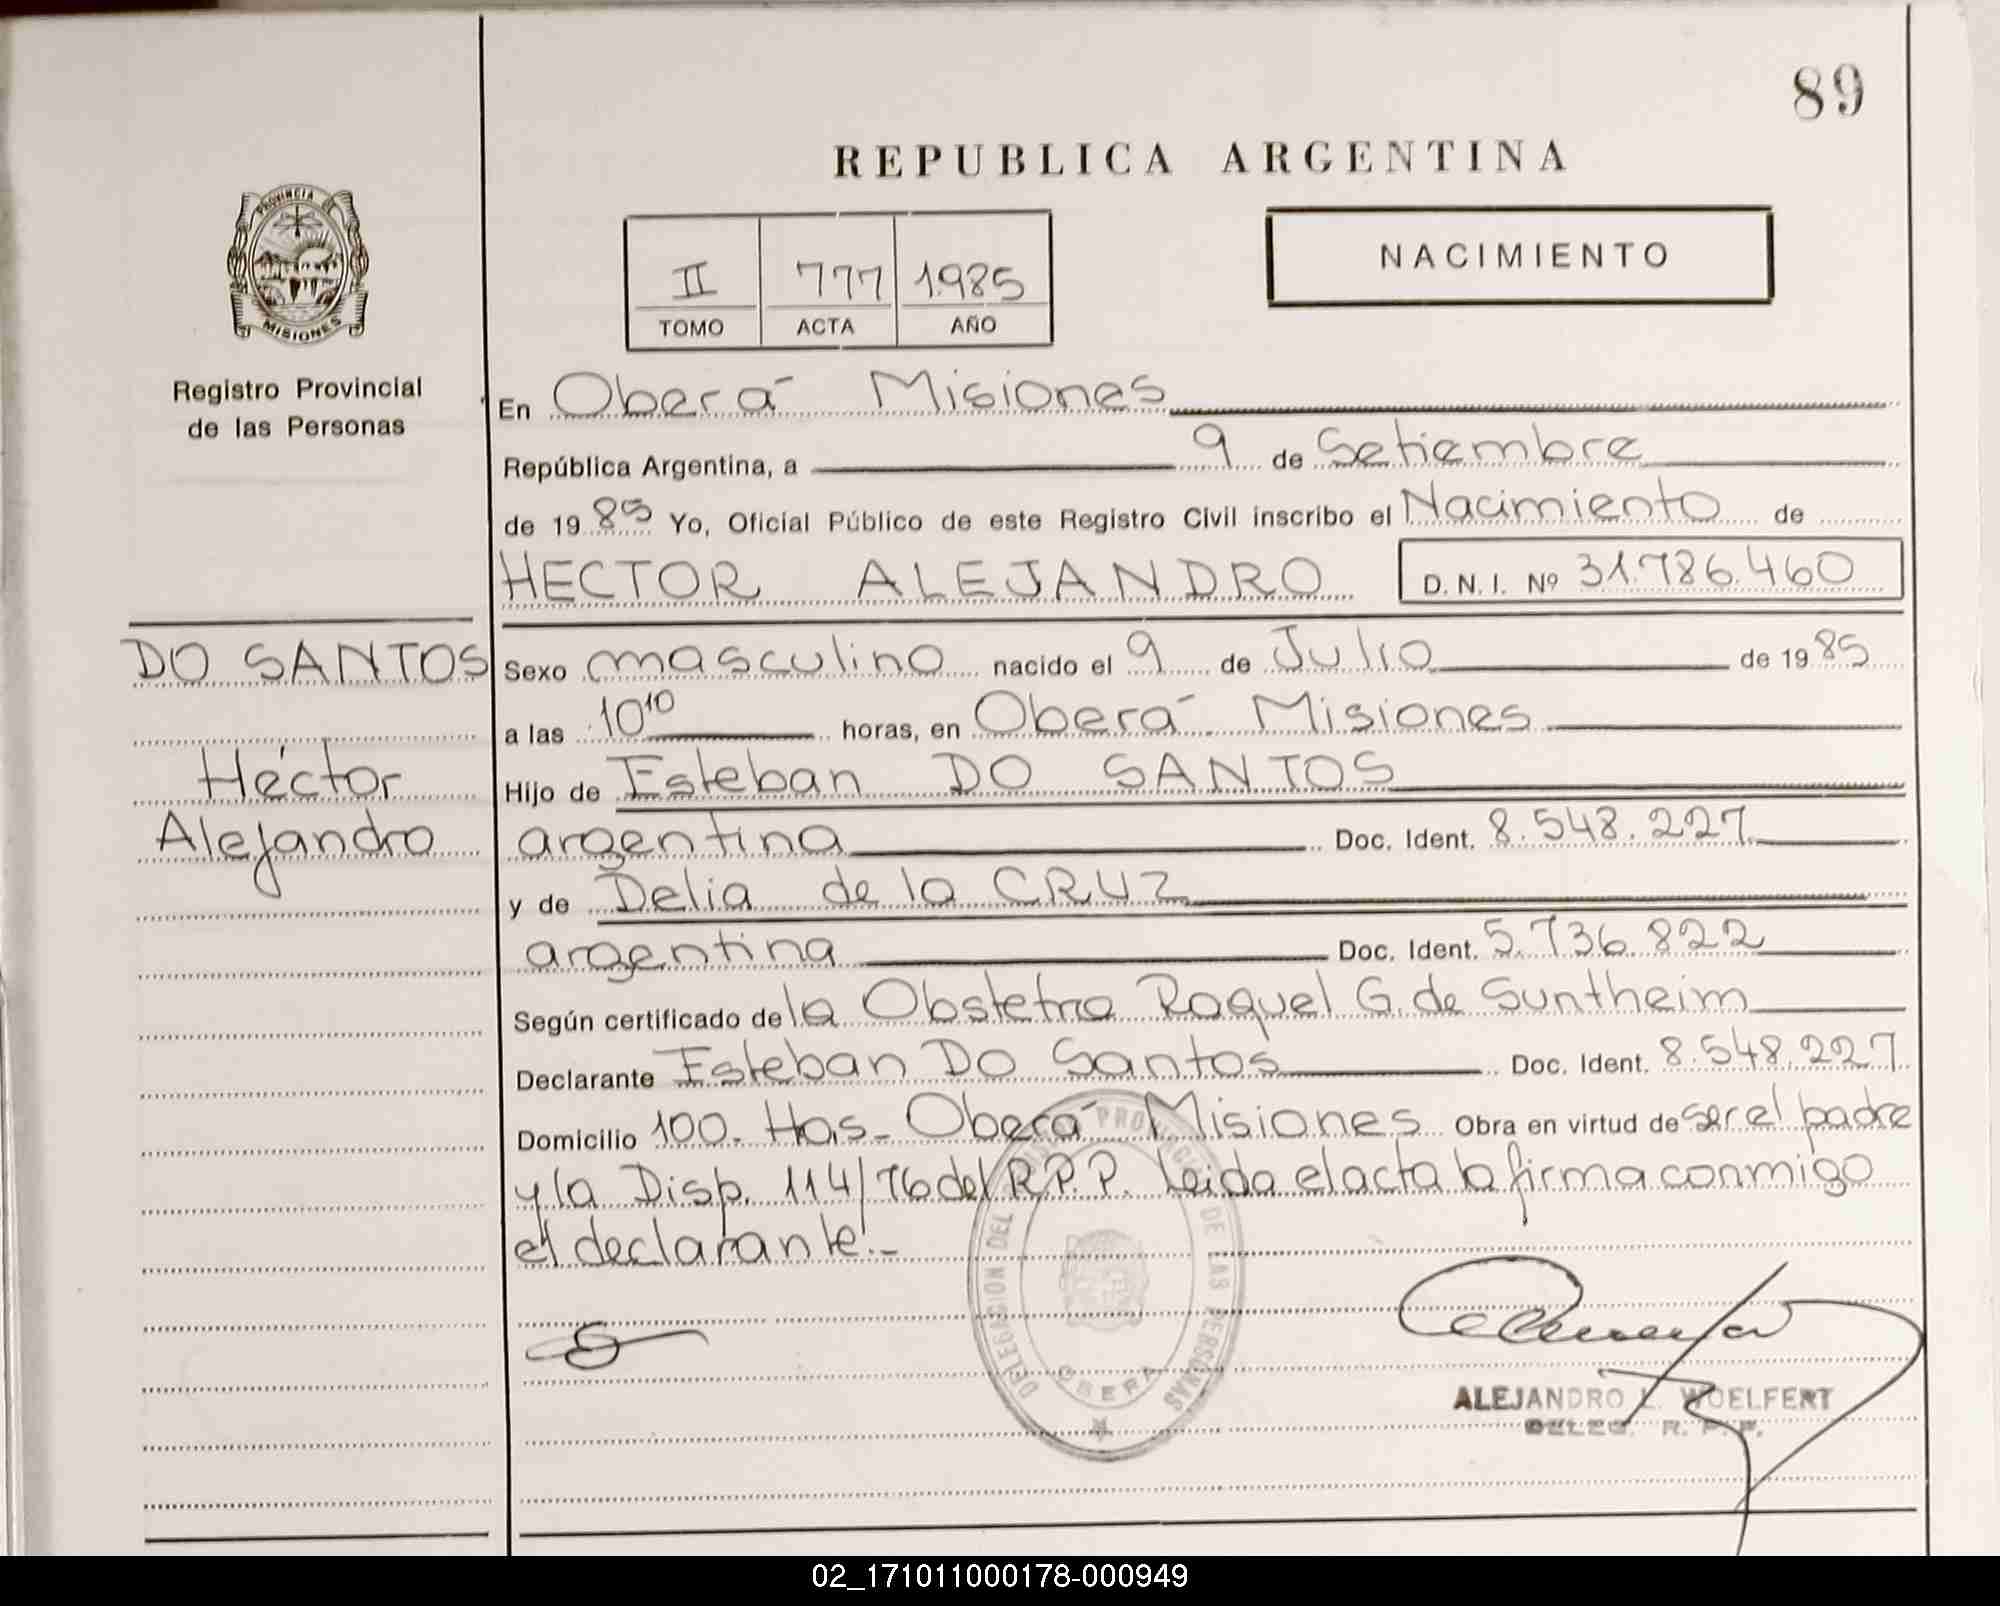 89
REPUBLICA ARGENTINA
PROVINCIA DE
MISIONES
II 777 1.985
TOMO ACTA AÑO
NACIMIENTO
Registro Provincial
de las Personas
En Oberá Misiones
República Argentina, a 9 de Setiembre
de 1985 Yo, Oficial Público de este Registro Civil inscribo el Nacimiento de
HECTOR ALEJANDRO D. N. I. Nº 31.786.460
DO SANTOS
Héctor
Alejandro
Sexo masculino nacido el 9 de Julio de 1985
a las 10¹⁰ horas, en Oberá Misiones
Hijo de Esteban DO SANTOS
argentina Doc. Ident. 8.548.227
y de Delia de la CRUZ
argentina Doc. Ident. 5.736.822
Según certificado de la Obstetra Raquel G. de Suntheim
Declarante Esteban Do Santos Doc. Ident. 8.548.227
Domicilio 100. Has- Oberá Misiones Obra en virtud de ser el padre
y la Disp. 114/76 del R.P.P. Leida el acta la firma conmigo
el declarante.-
DELEGACION DEL PROVINCIAL DE LAS PERSONAS
OBERA
ALEJANDRO L. WOELFERT
DELEG. R. P. P.
02_171011000178-000949